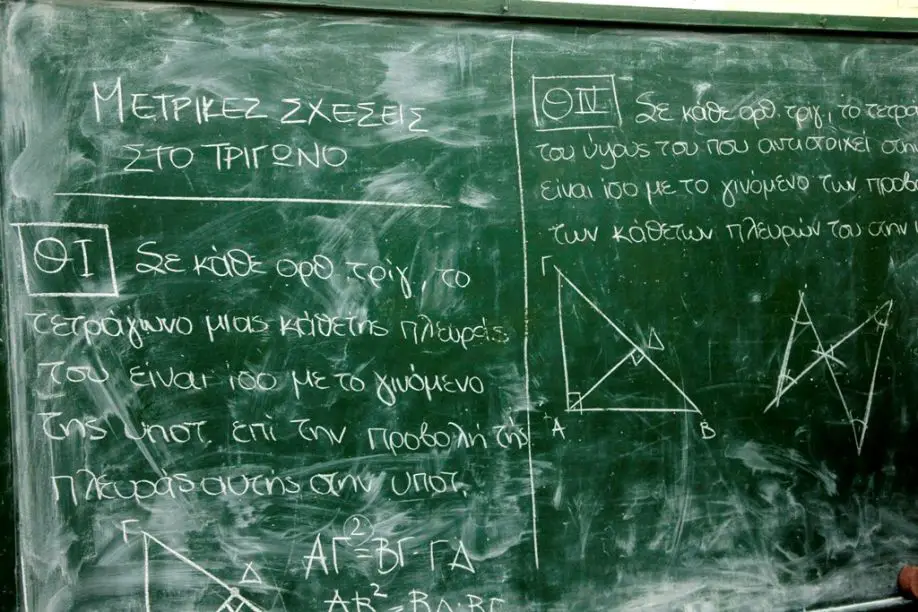 ΜΕΤΡΙΚΕΣ ΣΧΕΣΕΙΣ
ΣΤΟ ΤΡΙΓΩΝΟ
ΘΙ Σε κάθε ορθ τρίγ, το
τετράγωνο μιας κάθετης πλευράς
του είναι ίσο με το γινόμενο
της υποτ. επί την προβολή της
πλευράς αυτής στην υποτ.
Γ
Δ
ΑΓ²=ΒΓ·ΓΔ
ΑΒ²=ΒΔ·ΒΓ
ΘIV Σε κάθε ορθ. τρίγ, το τετρα
του ύψους του που αντιστοιχεί στην
είναι ίσο με το γινόμενο των προβ
των κάθετων πλευρών του στην
Γ
Δ
Α
Β